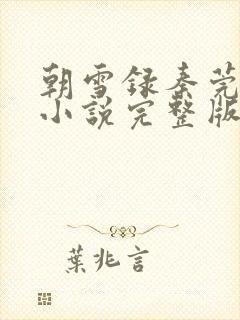 朝雪録秦莞
小說完整版
葉兆言